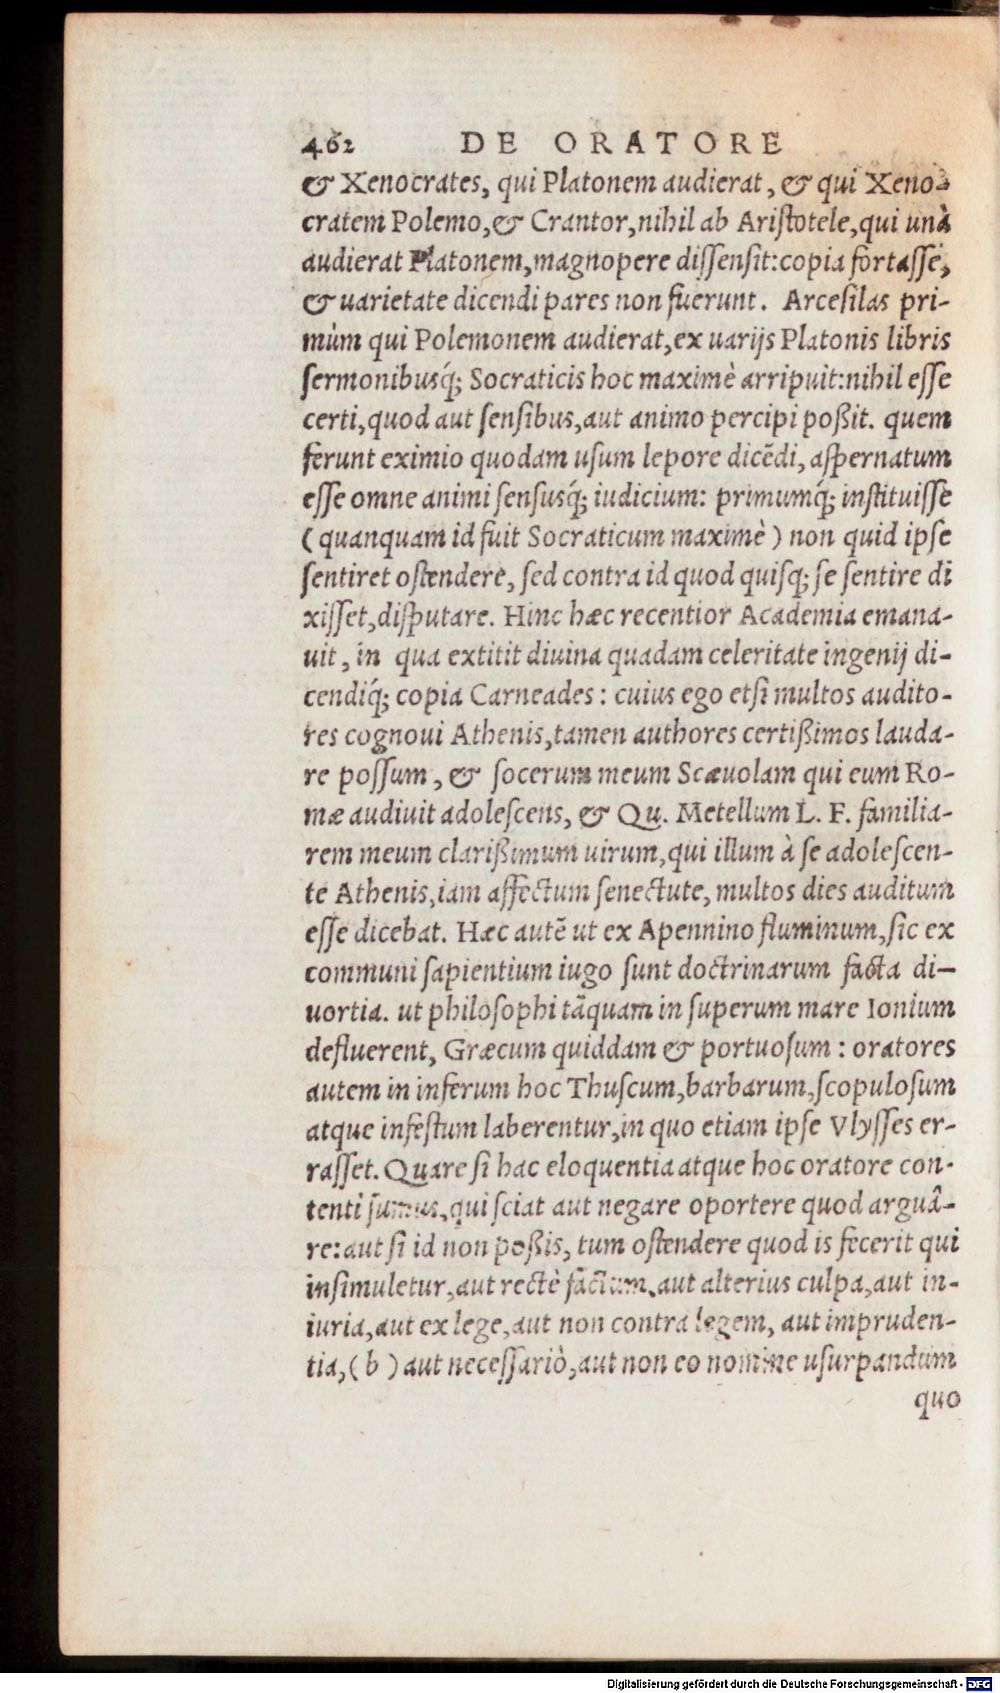 462 DE ORATORE
& Xenocrates, qui Platonem audierat, & qui Xeno-
cratem Polemo, & Crantor, nihil ab Aristotele, qui unà
audierat Platonem, magnopere dissensit: copia fortasse,
& uarietate dicendi pares non fuerunt. Arcesilas pri-
mùm qui Polemonem audierat, ex uarijs Platonis libris
sermonibusq́; Socraticis hoc maximè arripuit: nihil esse
certi, quod aut sensibus, aut animo percipi poßit. quem
ferunt eximio quodam usum lepore dicẽdi, aspernatum
esse omne animi sensusq́; iudicium: primumq́; instituisse
( quanquam id fuit Socraticum maximè ) non quid ipse
sentiret ostendere, sed contra id quod quisq; se sentire di
xisset, disputare. Hinc hæc recentior Academia emana-
uit, in qua extitit diuina quadam celeritate ingenij di-
cendiq́; copia Carneades : cuius ego etsi multos audito-
res cognoui Athenis, tamen authores certißimos lauda-
re possum, & socerum meum Scæuolam qui eum Ro-
mæ audiuit adolescens, & Qu. Metellum L. F. familia-
rem meum clarißimum uirum, qui illum à se adolescen-
te Athenis, iam affectum senectute, multos dies auditum
esse dicebat. Hæc autẽ ut ex Apennino fluminum, sic ex
communi sapientium iugo sunt doctrinarum facta di-
uortia. ut philosophi tãquam in superum mare Ionium
defluerent, Græcum quiddam & portuosum : oratores
autem in inferum hoc Thuscum, barbarum, scopulosum
atque infestum laberentur, in quo etiam ipse Vlysses er-
rasset. Quare si hac eloquentia atque hoc oratore con-
tenti sumus, qui sciat aut negare oportere quod arguâ-
re: aut si id non poßis, tum ostendere quod is fecerit qui
insimuletur, aut rectè factum, aut alterius culpa, aut in-
iuria, aut ex lege, aut non contra legem, aut impruden-
tia, ( b ) aut necessariò, aut non eo nomine usurpandum
quo
Digitalisierung gefördert durch die Deutsche Forschungsgemeinschaft - DFG